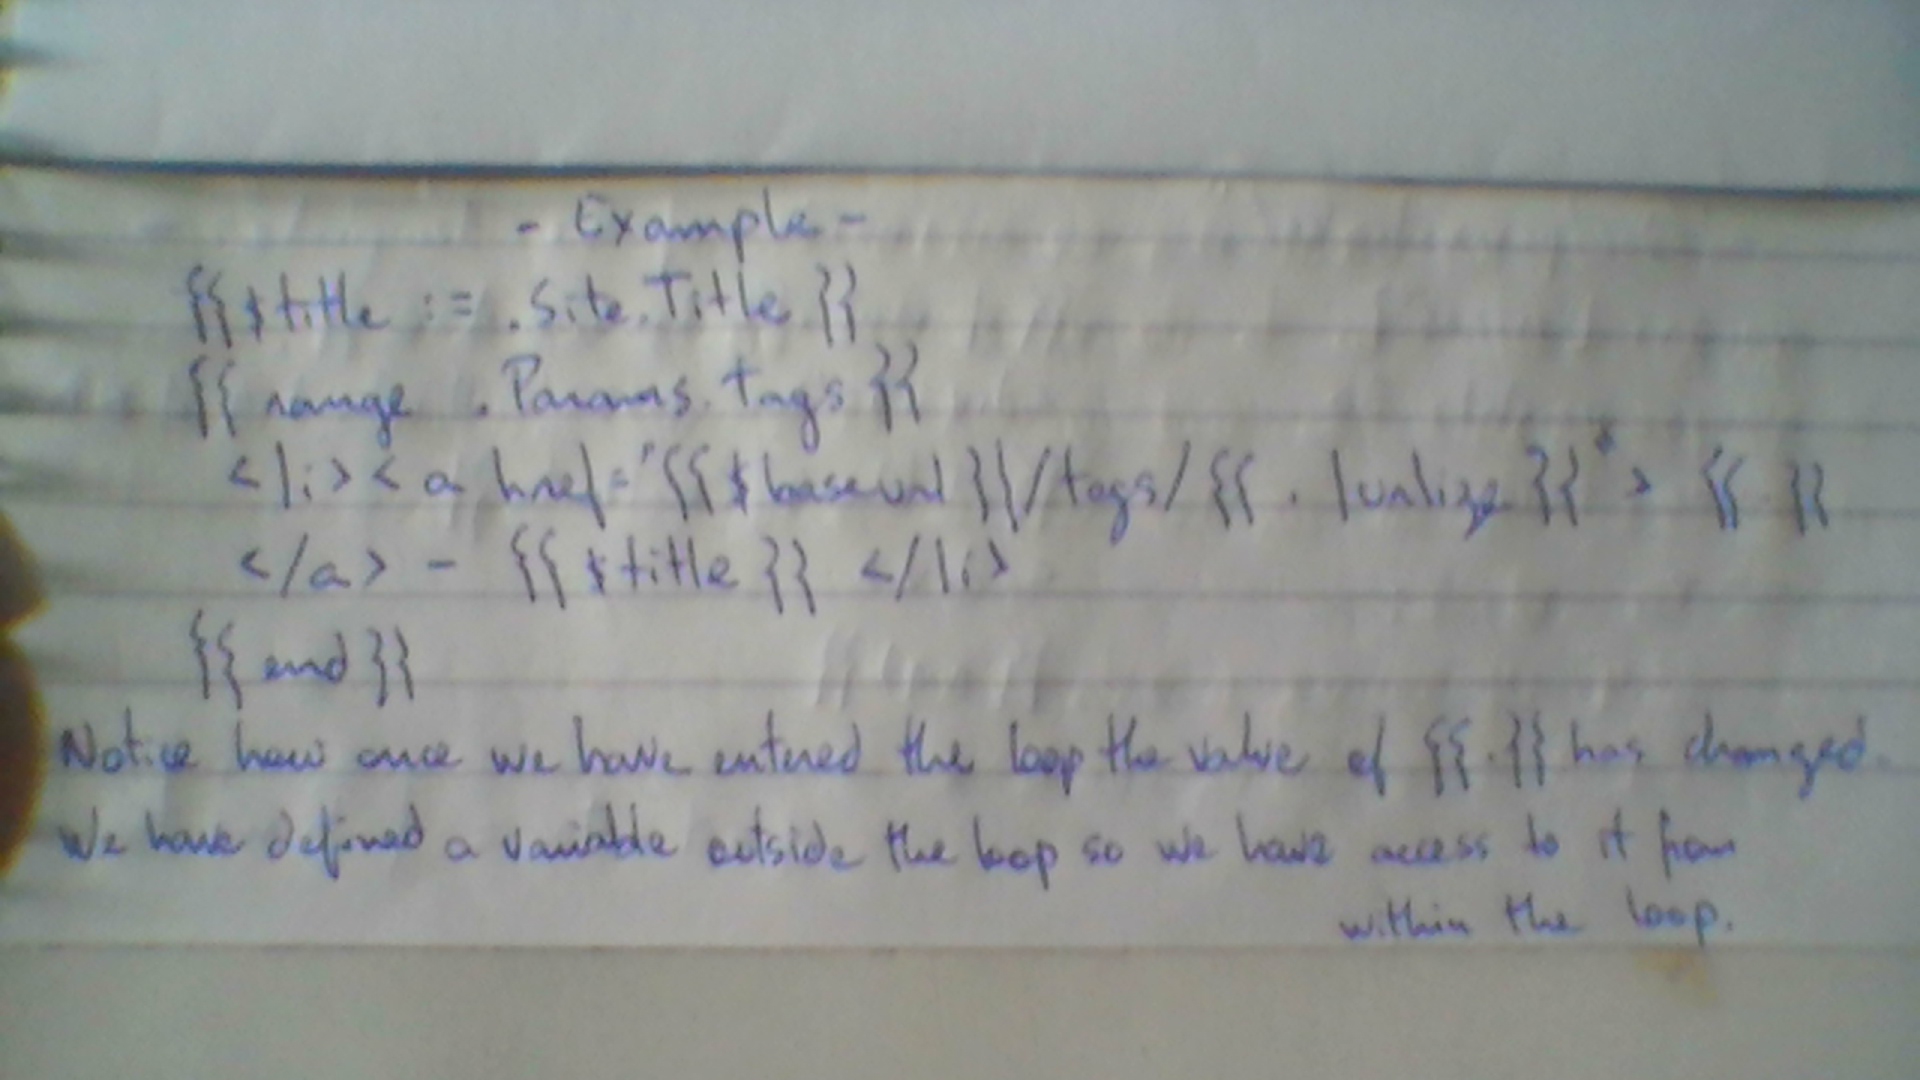 - Example -
{{ $title := .Site.Title }}
{{ range .Params.tags }}
<li><a href="{{ $baseurl }}/tags/{{ . | urlize }}"> {{ }}
</a> - {{ $title }} </li>
{{ end }}
Notice how once we have entered the loop the value of {{.}} has changed.
We have defined a variable outside the loop so we have access to it from
within the loop.